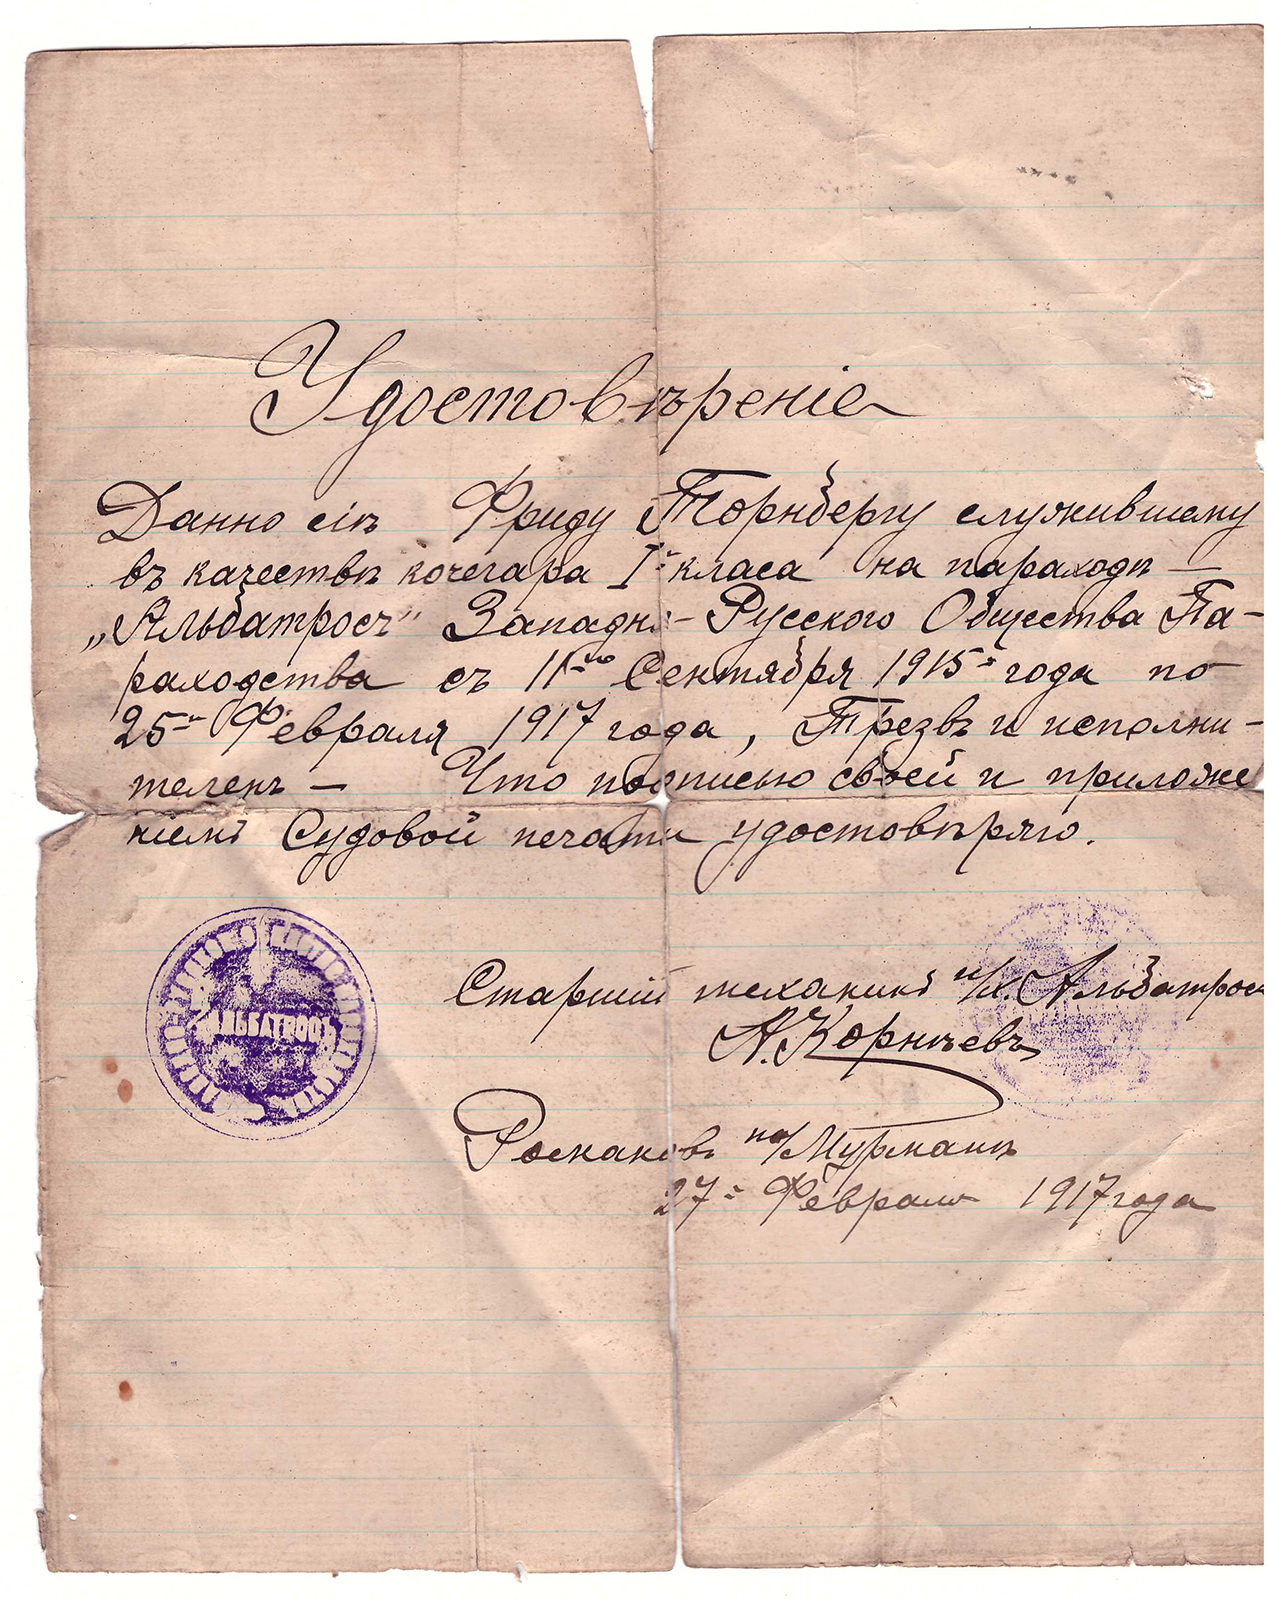 Удостовѣреніе
Данно сіѣ Фриду Торнбергу служившему
въ качествѣ кочегара I-класа на параходѣ —
„Альбатросъ" Западно-Русского Общества Па-
раходства съ 11-го Сентября 1915-года по
25-Февраля 1917 года, Трезвъ и исполни-
теленъ — Что подписью своей и приложе
ніемъ Судовой печати удостовѣряю.
АЛЬБАТРОСЪ
Старшій механикъ п/х. Альбатрос
А. Корнѣевъ
по/Мурманѣ
27-Февраля 1917 года